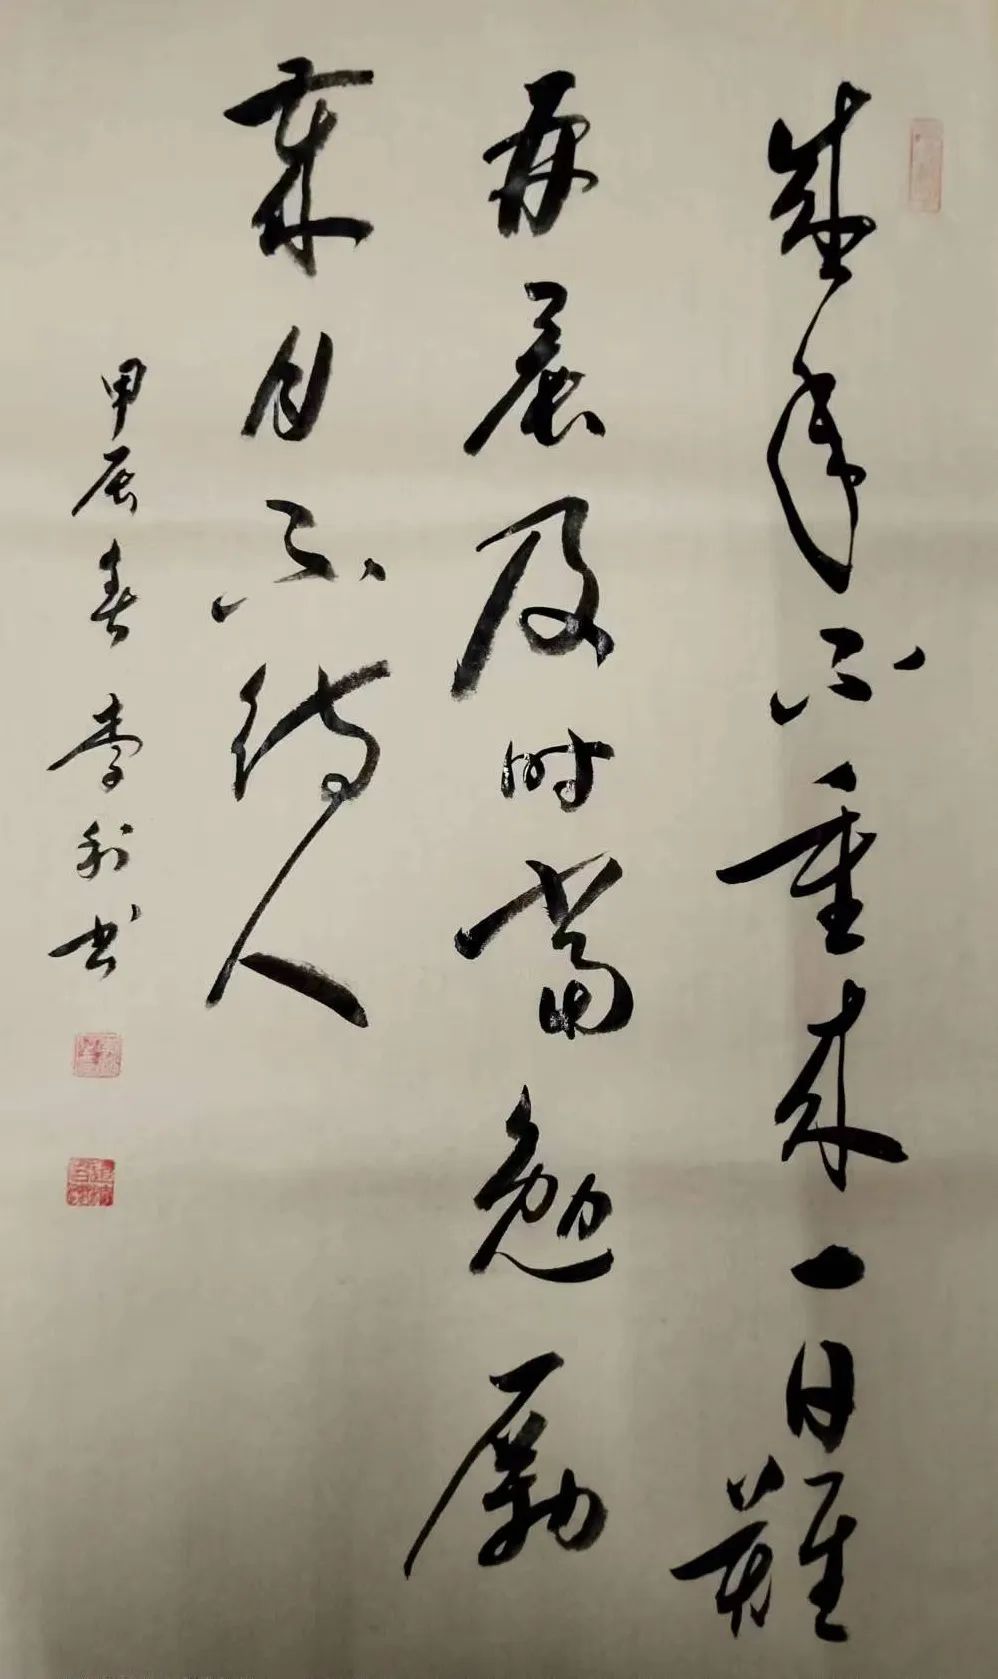 盛年不重来一日難
再晨及时當勉勵
歲月不待人
甲辰春 李利书